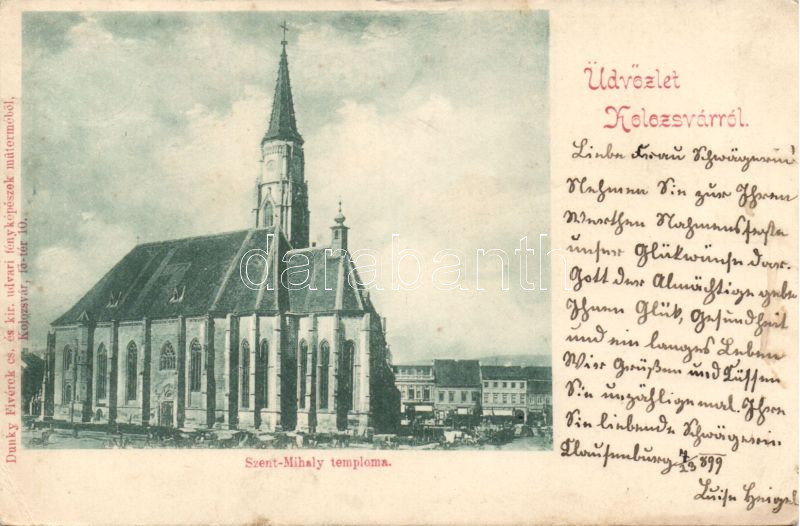 Dunky Fivérek cs. és kir. udvari fényképészek műterméből,
Kolozsvár, fő-tér 10.
Szent-Mihaly temploma.
Üdvözlet
Kolozsvárról.
Liebe Frau Schwägerin!
Nehmen Sie zur Ihren
Werthen Nahmensfeste
unser Glükwünse dar.
Gott der Almächtige gebe
Ihnen Glük, Gesundheit
und ein langes Leben
Wier Grüßen und Küssen
Sie unzählige mal. Ihre
Sie liebende Schwägerin
Klausenburg 899
Luise
darabanth